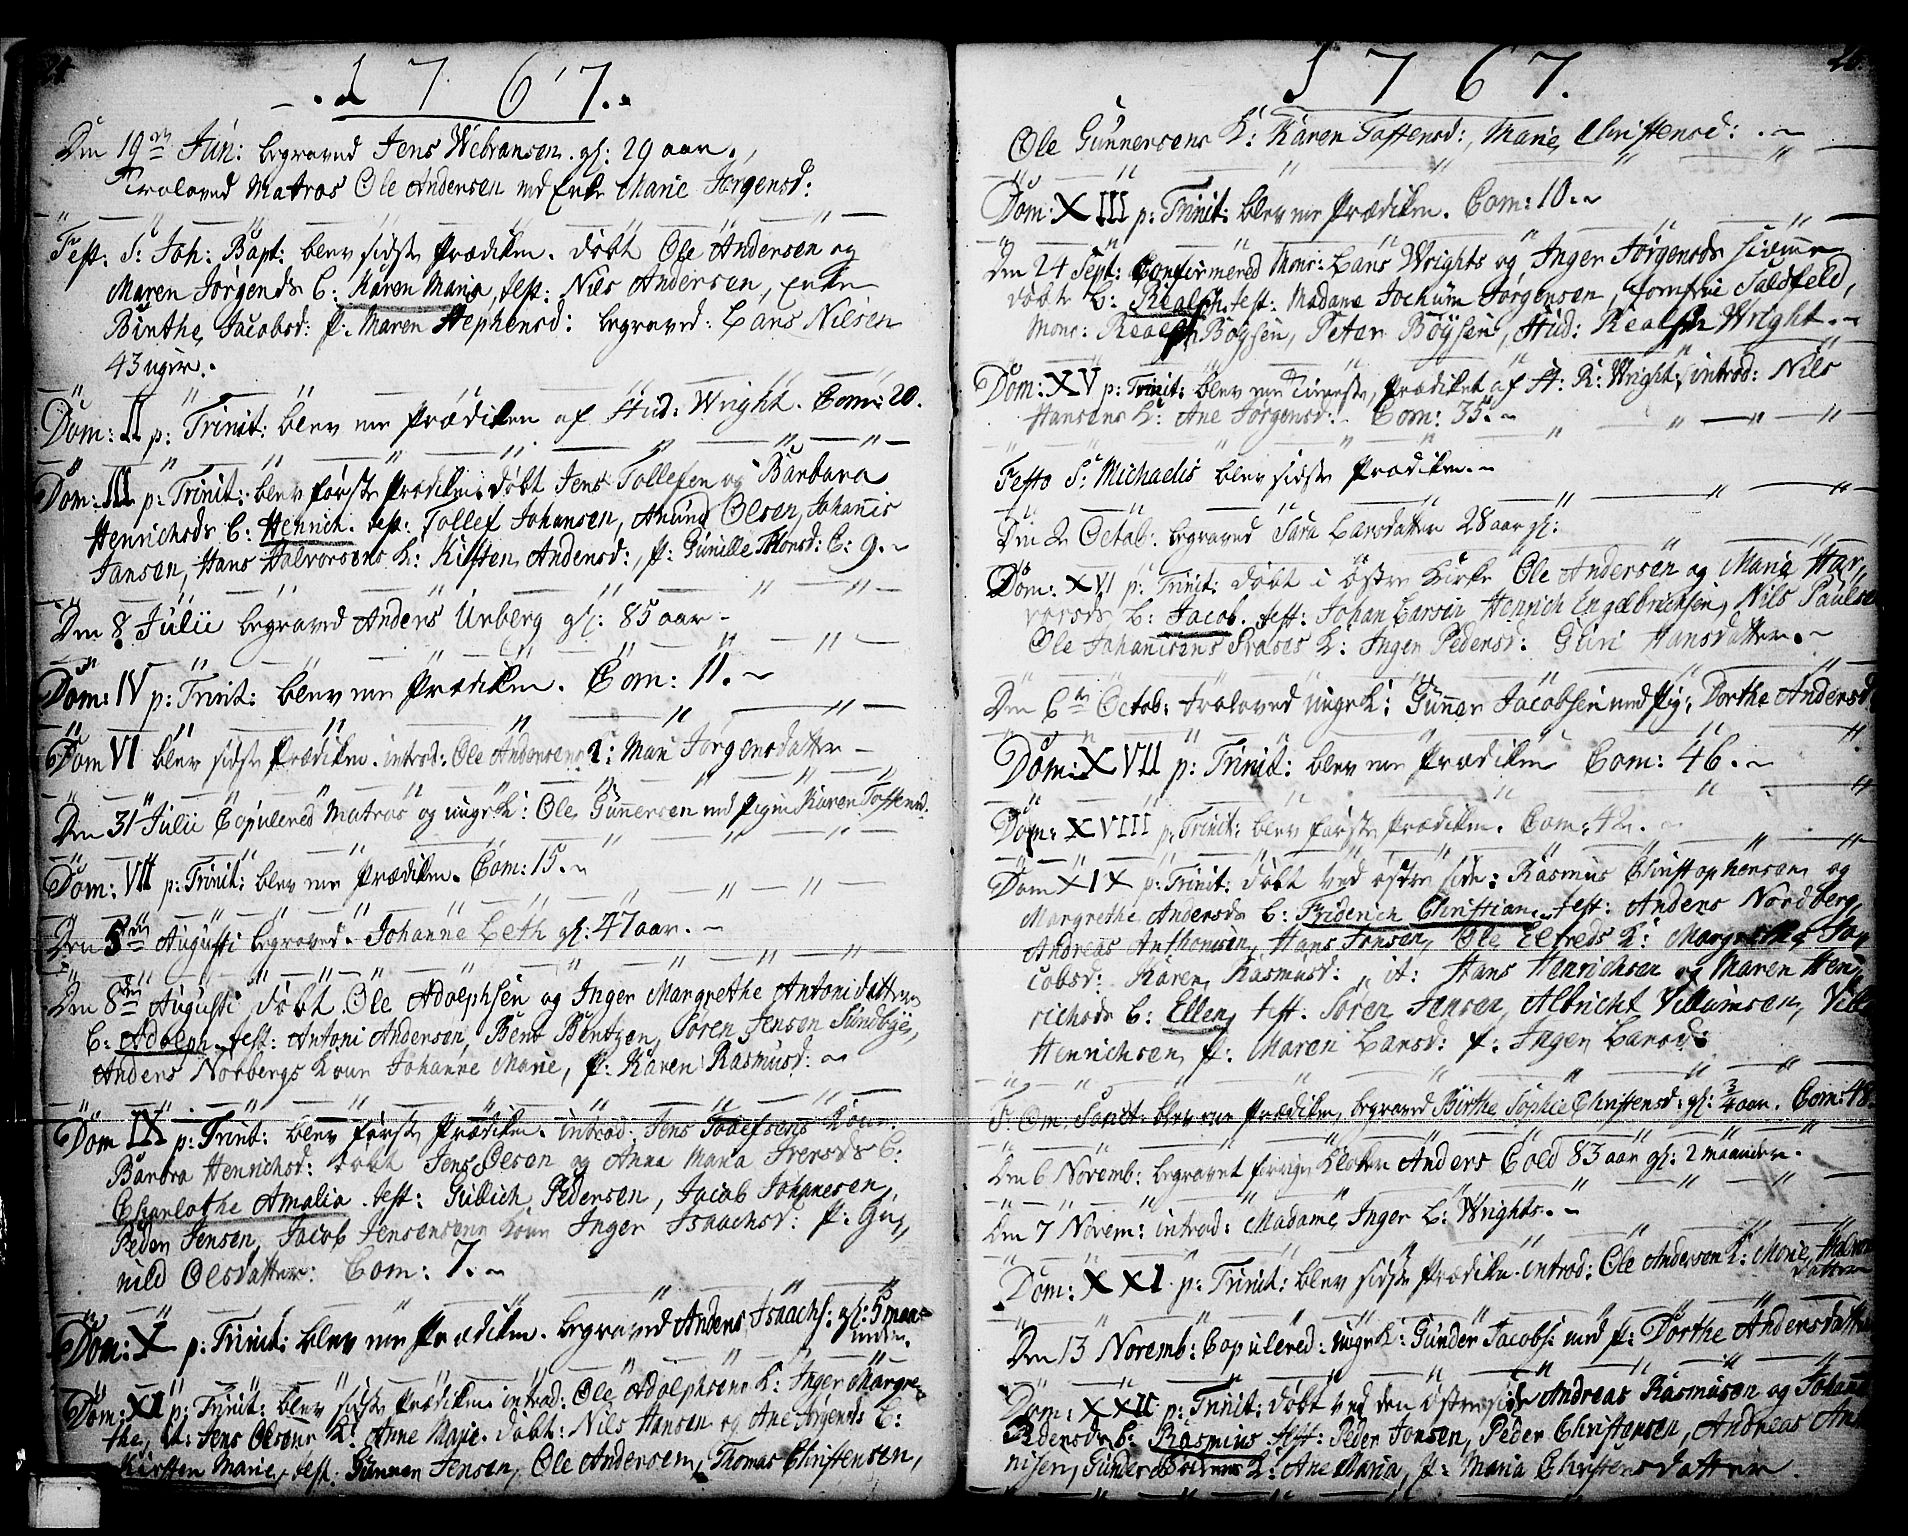 24
1767.
Den 19de Jun: begraved Jens Webransen. gl: 29 aar.
Troloved Matros Ole Andersen med Enke Marie Jørgensd:
Fest: S: Joh: Bapt: blev sidste Prædiken. døbt Ole Andersen og
Maren Jørgensds B: Karen Maria, test: Nils Andersen, Enke
Birthe Jacobsd: p: Maren Stephensd: begraved: Lars Nilsen
43 uger.
Dom: II p: Trinit: blev een Prædiken af Stud: Wright. Com: 20.
Dom: III p: Trinit: blev første Prædiken: døbt Jens Tollefsen og Barbara
Henrichsds B: Henrich. test: Tollef Johansen, Anund Olsen, Johannis
Jansen, Hans Halvorsens K: Kisten Andersd:, p: Gunille Thonsd: C: 9.
Den 8 Julii begraved Anders Unberg gl: 85 aar
Dom: IV p: Trinit: blev een Prædiken. Com: 11.
Dom VI blev sidste Prædiken. introd: Ole Andersens K: Mari Jørgensdatter
Den 31 Julii Copulered Matros og ungk: Ole Gunnersen med Pigen Karen Toffensd.
Dom: VII p: Trinit: blev een Prædiken. Com: 15.
Den 5te Augusti begraved. Johanne Leth gl: 47 aar.
Den 8de Augusti døbt Ole Adolphsen og Inger Margrethe Antonidatter
B: Adolph. test: Antoni Andersen, Bent Bentzen, Søren Jensen Sundbye,
Anders Norbergs Kone Johanne Marie, p: Karen Rasmusd:
Dom IX p: Trinit: blev første Prædiken. introd: Jens Tollefsens Kone
Barbra Henrichsd: døbt Jens Olsen og Anna Maria Iversds B:
Charlothe Amalia. test: Gullich Pedersen, Jacob Johannesen,
Peder Jensen, Jacob Jensens Kone Inger Isaachsd: p: Gu,
nild Olsdatter: Com: 7.
Dom: X p: Trinit: blev een Prædiken. begraved Anders Isaachs: gl: 5 maa-
neder.
Dom: XI p: Trinit: blev sidste Prædiken introd: Ole Adolphsens K: Inger Margre-
the, it: Jens Olsens K: Anne Marie. døbt: Nils Hansen og Ane Jørgensds B:
Kirsten Marie, test: Gunner Jensen, Ole Andersen, Thomas Christensen,
1767.
Ole Gunnersens K: Karen Toffensd:, Marie Christensd:
Dom: XIII p: Trinit: blev een Prædiken. Com: 10.
Den 24 Sept: Confirmered Monr: Lars Wrights og Inger Jørgensds hiemme
døbte B: Realph. test: Madame Jochum Jørgensen, Jomfrue Saldfeld,
Monr: Realph Boysen, Peter Böysen, Stud: Realph Wright.
Dom: XV p: Trinit: blev een Prædiket af St: R: Wright: introd: Nils
Hansens K: Ane Jørgensd: Com: 35.
Festo S: Michaelis blev sidste Prædiken.
Den 2 Octob: begraved Sara Larsdatter 28 aar gl:
Dom: XVI p: Trinit: døbt i Østre Kirke Ole Andersen og Maria Hal,
vorsds B: Jacob. test: Johan Larsen Henrich Engelbrichsen, Nils Paulse
Ole Johannisens Prases K: Inger Pedersd: Guri Hansdatter.
Den 6te Octob: troloved ungk: Gunner Jacobsen med Pig: Dorthe Andersd
Dom: XVII p: Trinit: blev een Prædiken Com: 46.
Dom: XVIII p: Trinit: blev første Prædiken. Com: 42.
Dom XIX p: Trinit: døbt ved østre side: Rasmus Christophersen og
Margrethe Andersds B: Friderich Christian. test: Anders Nordberg,
Andreas Anthonisen, Hans Jensen, Ole Elfreds K: Margrethe Ja,
cobsd: Karen Rasmusd: it: Hans Henrichsen og Maren Hen,
richsds B: Ellen, test. Søren Jensen, Albricht Villumsen, Ville
Henrichsen, p: Maren Larsd: p: Inger Larsd:
F: Om: Sanct: blev een Prædiken, begraved Birthe Sophie Christensd: gl: 3/4 aar. Com: 48.
Den 6 Novemb: begravet forrige Klokker Anders Cold 83 aar gl: 2 maaneder.
Den 7 Novem: introd: Madame Inger L: Wrights.
Dom: XXI p: Trinit: blev sidste Prædiken. introd: Ole Andersen K: Marie Halvors
datter
Den 13 Novemb: Copulered: ungk: Gunder Jacobs: med p: Dorthe Andersdatter
Dom: XXII p: Trinit: døbt ved den østre side Andreas Rasmusen og Johann
Pedersds B: Rasmus. test: Peder Jonsen, Peder Christensen, Andreas An
nisen, Gunder K: Ane Maria, p: Maria Christensdatter.